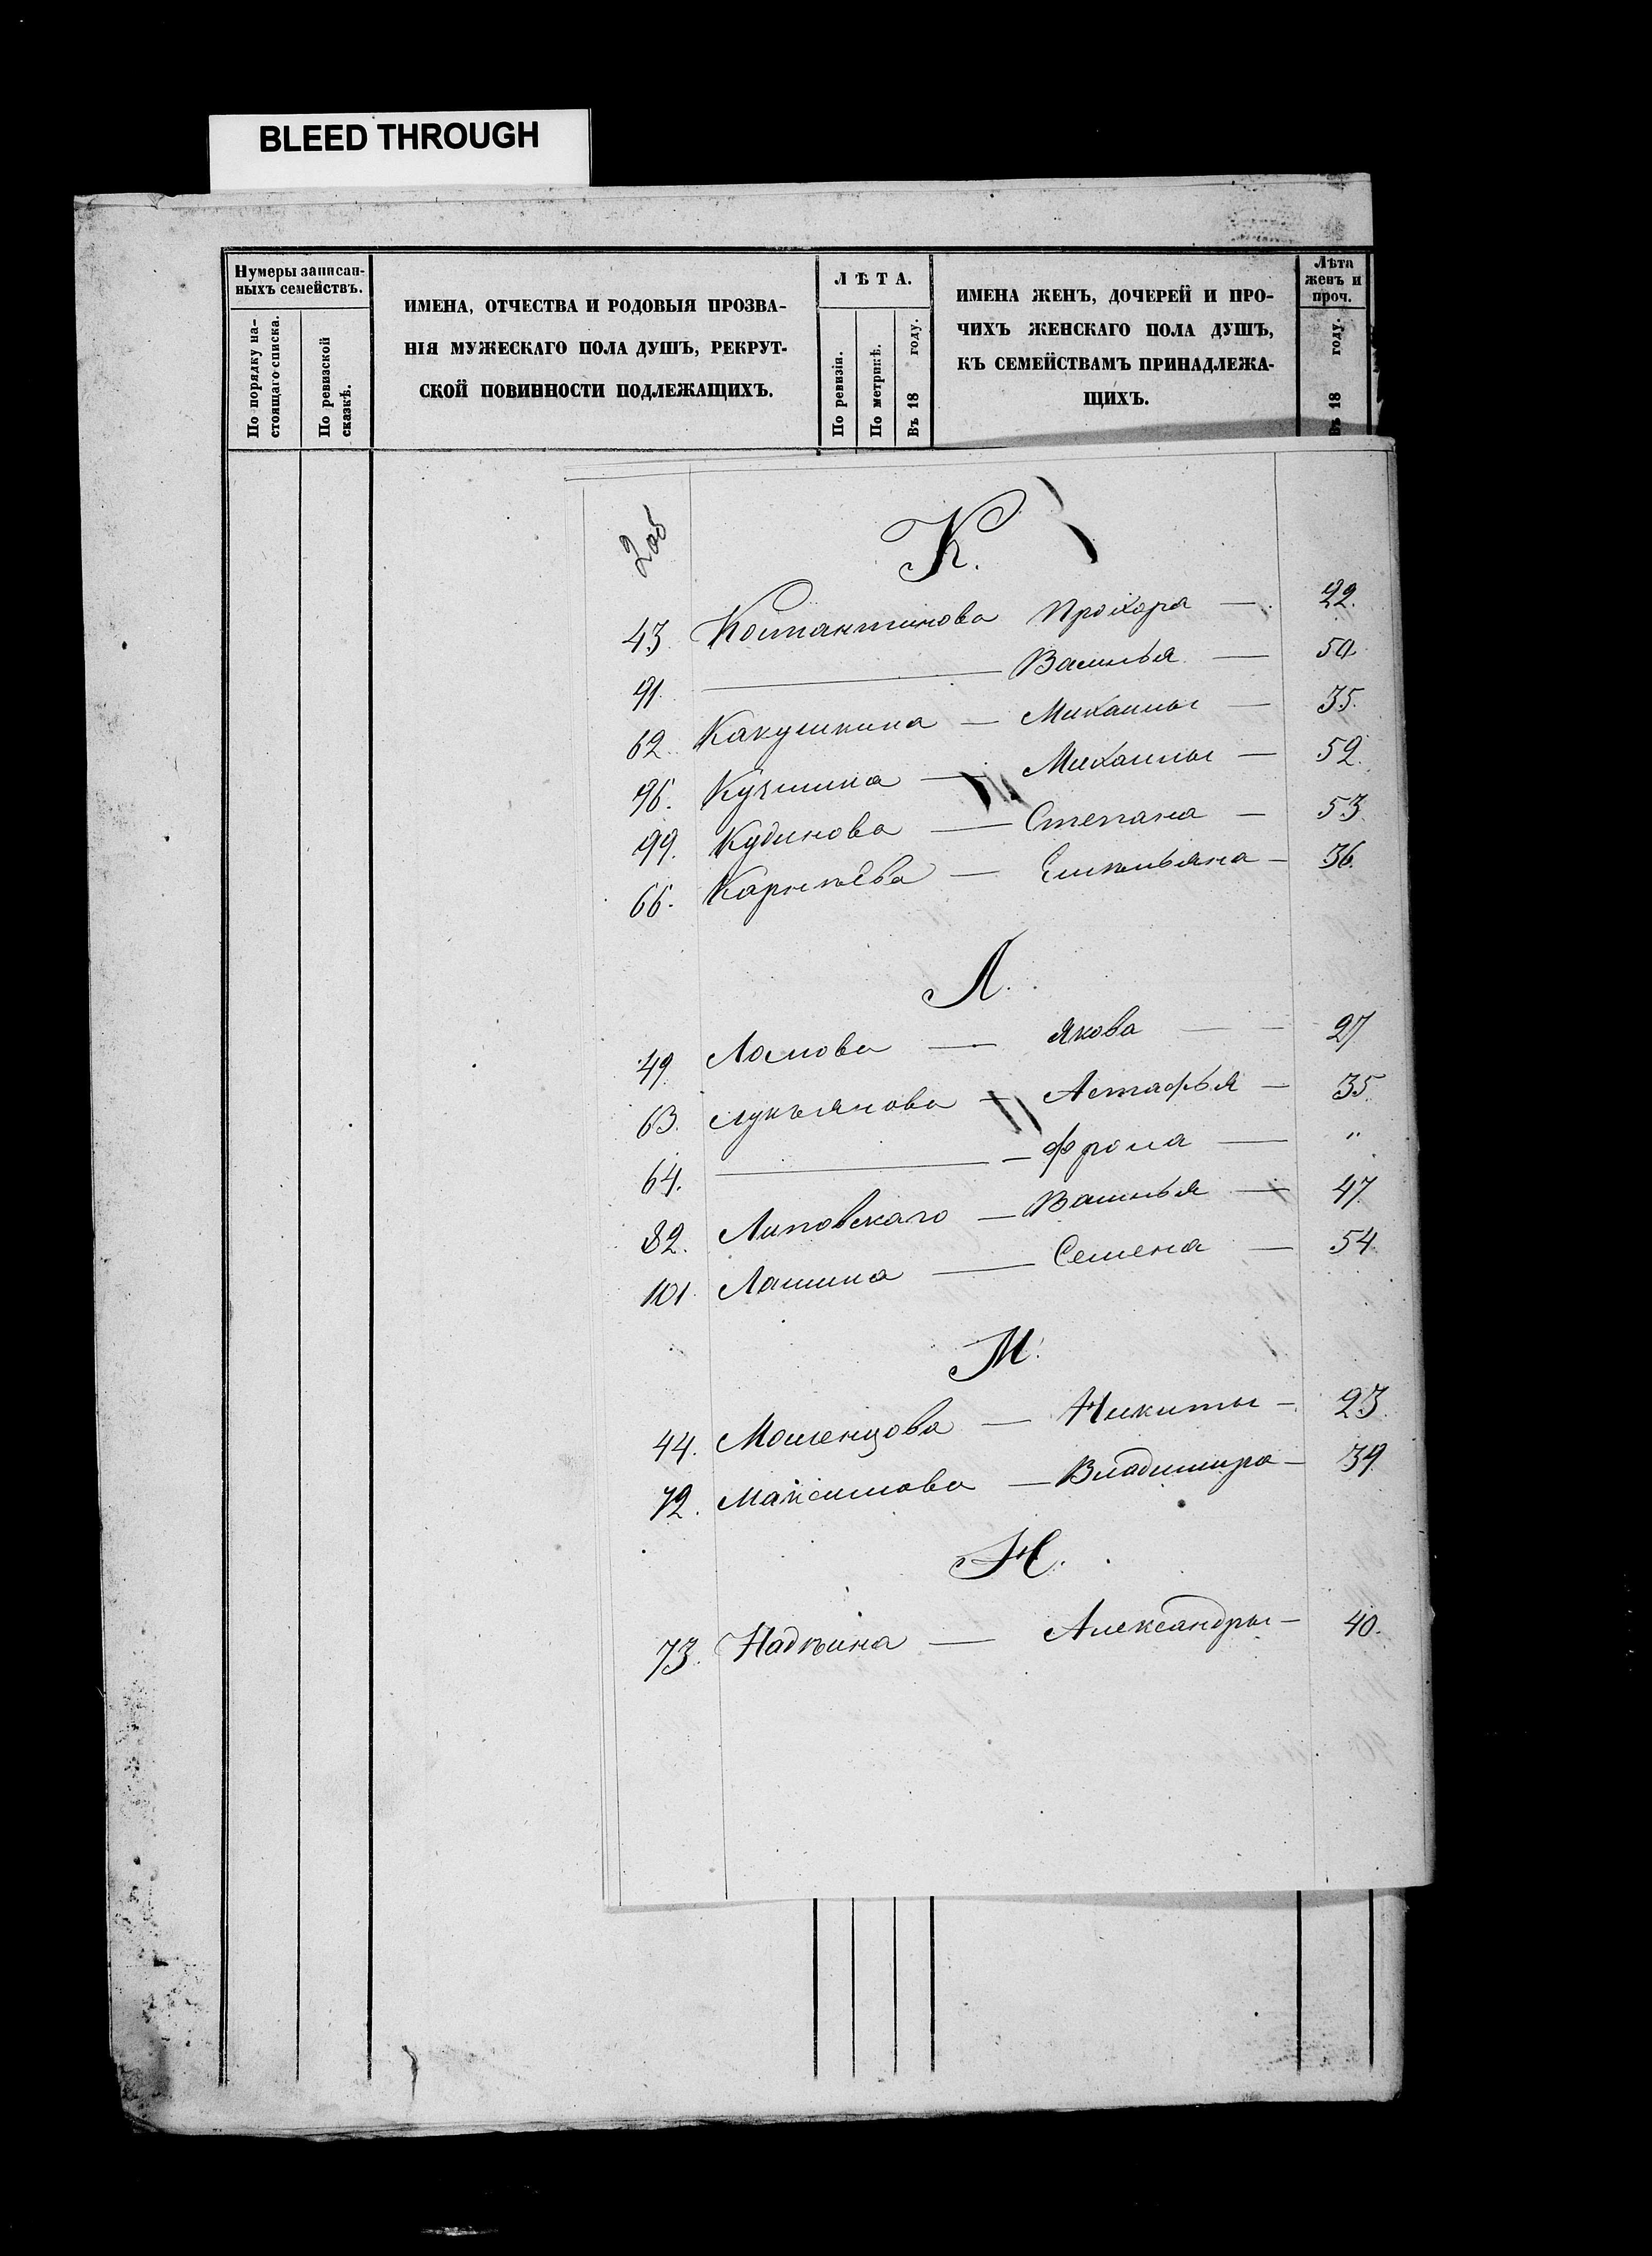 BLEED THROUGH
Нумеры записан-
ныхъ семействъ.
По порядку на-
стоящаго списка.
По ревизской
сказкѣ.
ИМЕНА, ОТЧЕСТВА И РОДОВЫЯ ПРОЗВА-
НІЯ МУЖЕСКАГО ПОЛА ДУШЪ, РЕКРУТ-
СКОЙ ПОВИННОСТИ ПОДЛЕЖАЩИХЪ.
ЛѢТА.
По ревизіи.
По метрикѣ.
Въ 18 году.
ИМЕНА ЖЕНЪ, ДОЧЕРЕЙ И ПРО-
ЧИХЪ ЖЕНСКАГО ПОЛА ДУШЪ,
КЪ СЕМЕЙСТВАМЪ ПРИНАДЛЕЖА-
ЩИХЪ.
Лѣта
женъ и
проч.
Въ 18 году.
2об
К.
43. Костантинова Прохора — 22.
91. — Василья — 50.
62. Какушкина — Михаилы — 35.
96. Кузмина — Михаилы — 52.
99. Кудинова — Степана — 53.
66. Карнѣева — Емельяна — 36.
Л.
49. Ломова — Якова — 27
63. Лукьянова — Астафья — 35.
64. — Фрола — "
82. Липовскаго — Василья — 47.
101. Лашина — Семена — 54.
М.
44. Мошенцова — Никиты — 23.
72. Максимова — Владимира — 39.
Н.
73. Надѣина — Александры — 40.